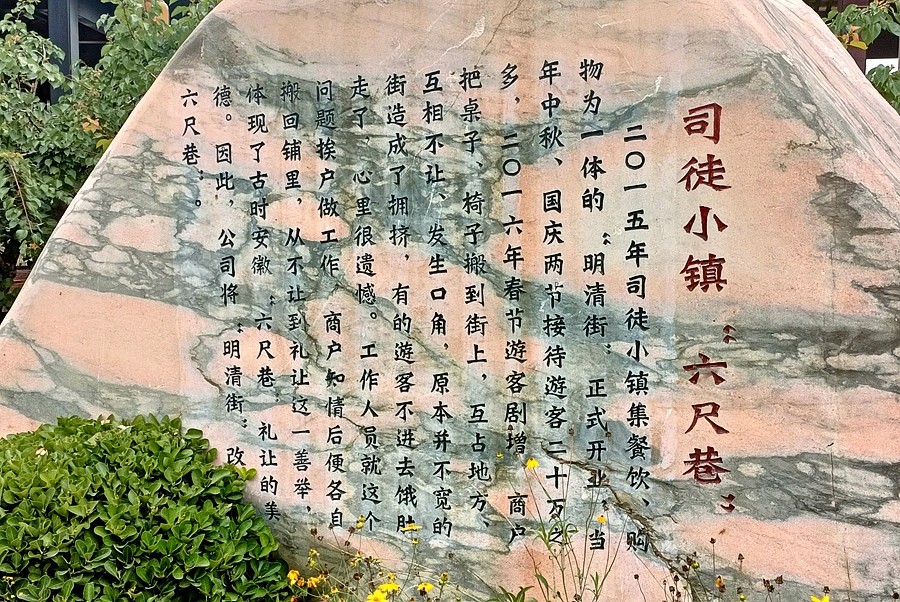 司徒小镇 “六尺巷”
二〇一五年司徒小镇集餐饮、购
物为一体的“明清街”正式开业 当
年中秋、国庆两节接待游客二十万之
多，二〇一六年春节游客剧增 商户
把桌子、椅子搬到街上，互占地方、
互相不让、发生口角，原本并不宽的
街造成了拥挤，有的游客不进去饿肚
走了 心里很遗憾。工作人员就这个
问题挨户做工作 商户知情后便各自
搬回铺里，从不让到礼让这一善举，
体现了古时安徽“六尺巷”礼让的美
德。因此，公司将“明清街”改
六尺巷”。